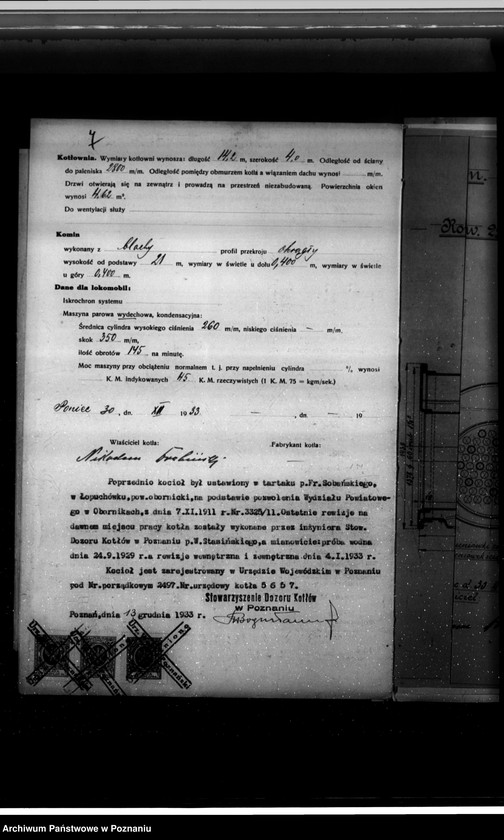 7
Kotłownia. Wymiary kotłowni wynoszą: długość 14,2 m, szerokość 4,0 m. Odległość od ściany
do paleniska 2800 m/m. Odległość pomiędzy obmurzem kotła a wiązaniem dachu wynosi m/m.
Drzwi otwierają się na zewnątrz i prowadzą na przestrzeń niezabudowaną. Powierzchnia okien
wynosi 4,62 m².
Do wentylacji służy
Komin
wykonany z blachy profil przekroju okrągły
wysokość od podstawy 21 m, wymiary w świetle u dołu 0,400 m, wymiary w świetle
u góry 0,400 m.
Dane dla lokomobil:
Iskrochron systemu
Maszyna parowa wydechowa, kondensacyjna:
Średnica cylindra wysokiego ciśnienia 260 m/m, niskiego ciśnienia — m/m,
skok 350 m/m,
ilość obrotów 145 na minutę.
Moc maszyny przy obciążeniu normalnem t. j. przy napełnieniu cylindra % wynosi
K. M. indykowanych 45 K. M. rzeczywistych (1 K. M. 75 = kgm/sek.)
Poniec 30, dn. XII 1933. — , dn. — 19
Właściciel kotła: Fabrykant kotła:
Nikodem —
Poprzednio kocioł był ustawiony w tartaku p.Fr.Sobańskiego,
w Łopuchówku,pow.obornicki,na podstawie pozwolenia Wydziału Powiatowe-
go w Obornikach,z dnia 7.XI.1911 r.Nr.3325/11.Ostatnie rewizje na
dawnem miejscu pracy kotła zostały wykonane przez inżyniera Stow.
Dozoru Kotłów w Poznaniu p.W.Stasińskiego,a mianowicie:próba wodna
dnia 24.9.1929 r.a rewizje wewnętrzna i zewnętrzna dnia 4.I.1933 r.
Kocioł jest zarejestrowany w Urzędzie Wojewódzkim w Poznaniu
pod Nr.porządkowym 2497.Nr.urzędowy kotła 5 6 5 7.
Stowarzyszenie Dozoru Kotłów
w Poznaniu
Poznań,dnia 13 grudnia 1933 r.
Row. 2
Archiwum Państwowe w Poznaniu